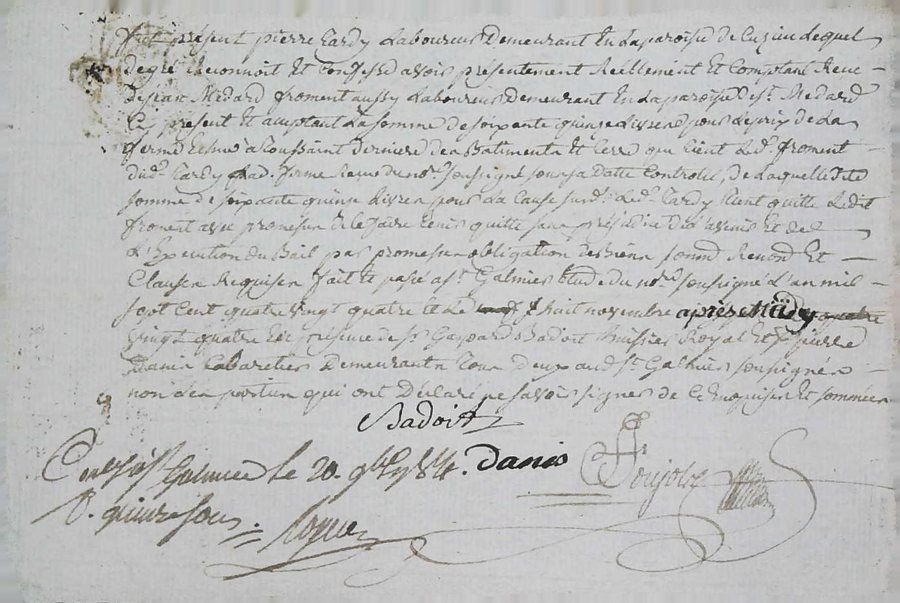 fut présent pierre tardy Laboureur Demeurant En La paroisse de Cuzieu Lequel
de gré Reconnoit Et Confesse avoir présentement Réellement Et Comptant Receu
de jean Médard froment aussy Laboureur Demeurant En La paroisse de st. Médard
Cy présent Et acceptant La somme de soixante quinze Livres pour Le prix de La
ferme Echue a toussaint Derniere des Batiments Et terre que tient Led. froment
dud. tardy sous sa datte Controllé, De Laquelle dite
somme de soixante quinze Livres pour La Cause susd. Led. tardy tient quitte Ledit
froment avec promesse de le faire tenir quitte sans préjudice Et de
L'Execution du Bail par promesse obligation des biens soumis Renond Et
Clauses Requises fait Et passé a st. Galmier Etude du no.re soussigné L'an mil
sept Cent quatre vingt quatre Et Le huit novembre après Midy quatre
vingt quatre En présence de sr. Gaspard Badoit huissier Royal Et pierre
Danis Cabaretier Demeurants tous deux aud. st. Galmier soussignés
non Les parties qui ont Déclaré ne savoir signer de Ce Enquises Et sommées
Badoit
Conté a st Galmier Le 20. 9bre 1784. Danis
R. quinze sous. Ponjolre